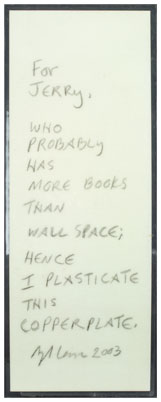 For
JERRY,
WHO
PROBABLY
HAS
MORE BOOKS
THAN
WALL SPACE;
HENCE
I PLASTICATE
THIS
COPPERPLATE.
2003